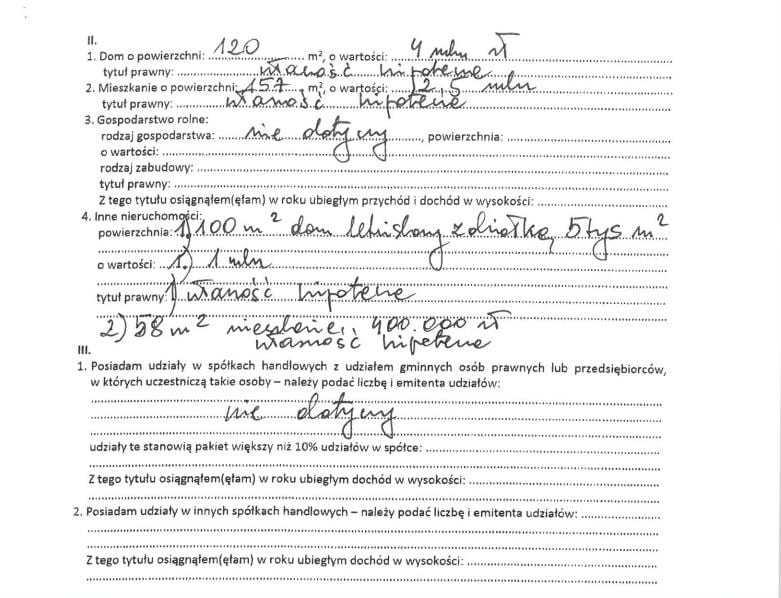 II.
1. Dom o powierzchni: 120 m², o wartości: 4 mln zł
tytuł prawny: własność hipoteczne
2. Mieszkanie o powierzchni: 157 m², o wartości: 2,5 mln
tytuł prawny: własność hipoteczne
3. Gospodarstwo rolne:
rodzaj gospodarstwa: nie dotyczy, powierzchnia:
o wartości:
rodzaj zabudowy:
tytuł prawny:
Z tego tytułu osiągnąłem(ęłam) w roku ubiegłym przychód i dochód w wysokości:
4. Inne nieruchomości:
powierzchnia: 1) 100 m² dom letniskowy z działką 5 tys m²
o wartości: 1.) 1 mln
tytuł prawny: 1) własność hipoteczne
2) 58 m² mieszkanie, 400.000 zł
własność hipoteczne
III.
1. Posiadam udziały w spółkach handlowych z udziałem gminnych osób prawnych lub przedsiębiorców,
w których uczestniczą takie osoby – należy podać liczbę i emitenta udziałów:
nie dotyczy
udziały te stanowią pakiet większy niż 10% udziałów w spółce:
Z tego tytułu osiągnąłem(ęłam) w roku ubiegłym dochód w wysokości:
2. Posiadam udziały w innych spółkach handlowych – należy podać liczbę i emitenta udziałów:
Z tego tytułu osiągnąłem(ęłam) w roku ubiegłym dochód w wysokości: